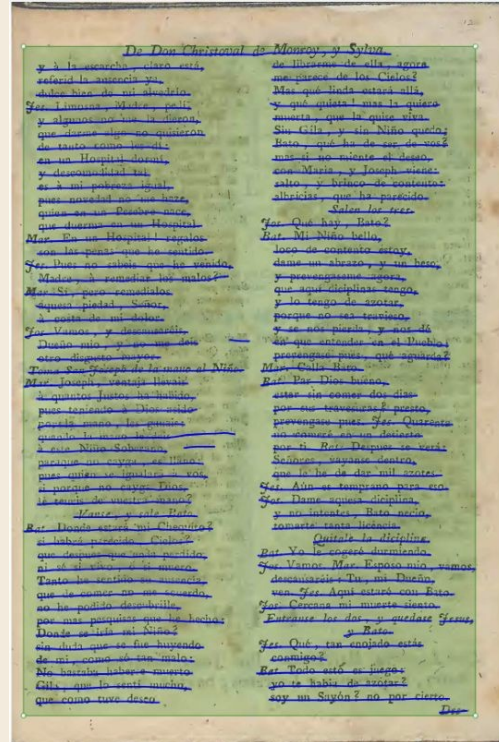 De Don Christoval de Monroy, y Sylva.
y à la escarcha, claro está,
referid la ausencia ya,
dulce bien de mi alvedrio.
Jes. Limosna, Madre, pedí,
y algunos no me la dieron,
que darme algo no quisieron
de tanto como les dí:
en un Hospital dormí,
y descomodidad tal
es à mi pobreza igual,
pues novedad no me hace,
quien en un Pesebre nace,
que duerma en un Hospital.
Mar. En un Hospital? regalos
son las penas que he sentido.
Jes. Pues no sabeis que he venido,
Madre, à remediar los malos?
Mar. Sí, pero remedialos
vuestra piedad, Señor,
à costa de mi dolor.
Jos. Vamos, y descansaréis,
Dueño mio, y no me deis
otro disgusto mayor.
Toma San Joseph de la mano el Niño.
Mar. Joseph, ventaja llevais
à quantos Justos ha habido,
pues teniendo à Dios asido
por la mano
quando la mano
à este Niño Soberano,
paraque no cayga, es llano:
pues quien se igualará à vos,
si porque no cayga Dios,
le teneis de vuestra mano?
Vanse, y sale Bato.
Bat. Donde estará mi Chequito?
si habrá parecido, Cielos?
que despues que se ha perdido,
ni sé si vivo, ó si muero.
Tanto he sentido su ausencia,
que de comer no me acuerdo,
no he podido descubrille,
por mas pesquisas que he hecho:
Donde se iria mi Niño?
sin duda que se fue huyendo
de mi, como só tan malo:
No bastaba haberse muerto
Gila, que lo sentí mucho,
que como tuve deseo
de librarme de ella, agora
me parece de los Cielos?
Mas qué linda estará allá,
y qué quieta! mas la quiero
muerta, que la quise viva.
Sin Gila, y sin Niño quedo:
Bato, qué ha de ser de vos?
mas si no miente el deseo,
con Maria, y Joseph viene:
salto, y brinco de contento:
albricias, que ha parecido.
Salen los tres.
Jos. Qué hay, Bato?
Bat. Mi Niño bello,
loco de contento estoy,
dame un abrazo, y un beso,
y prevengaseme agora,
que aquí diciplinas tengo,
y lo tengo de azotar,
porque no sea travieso,
y se nos pierda, y nos dé
en que entender en el Pueblo;
prevengase pues, qué aguarda?
Mar. Calla Bato.
Bat. Par Dios bueno,
estar sin comer dos dias
por sus travesuras? presto,
prevengase pues. Jes. Quarenta
no comeré en un desierto
por tí. Bat. Despues se verá:
Señores, vayanse dentro,
que le he de dar mil azotes.
Jes. Aún es temprano para eso.
Jos. Dame aquesa diciplina,
y no intentes, Bato necio,
tomarte tanta licencia.
Quitale la diciplina.
Bat. Yo le cogeré durmiendo.
Jos. Vamos. Mar. Esposo mio, vamos,
descansaréis: Tu, mi Dueño,
ven. Jes. Aquí estaré con Bato.
Jos. Cercana mi muerte siento.
Entranse los dos, y quedase Jesus,
y Bato.
Jes. Qué, tan enojado estás
conmigo?
Bat. Todo esto es juego:
yo te habia de azotar?
soy un Sayón? no por cierto.
Des-